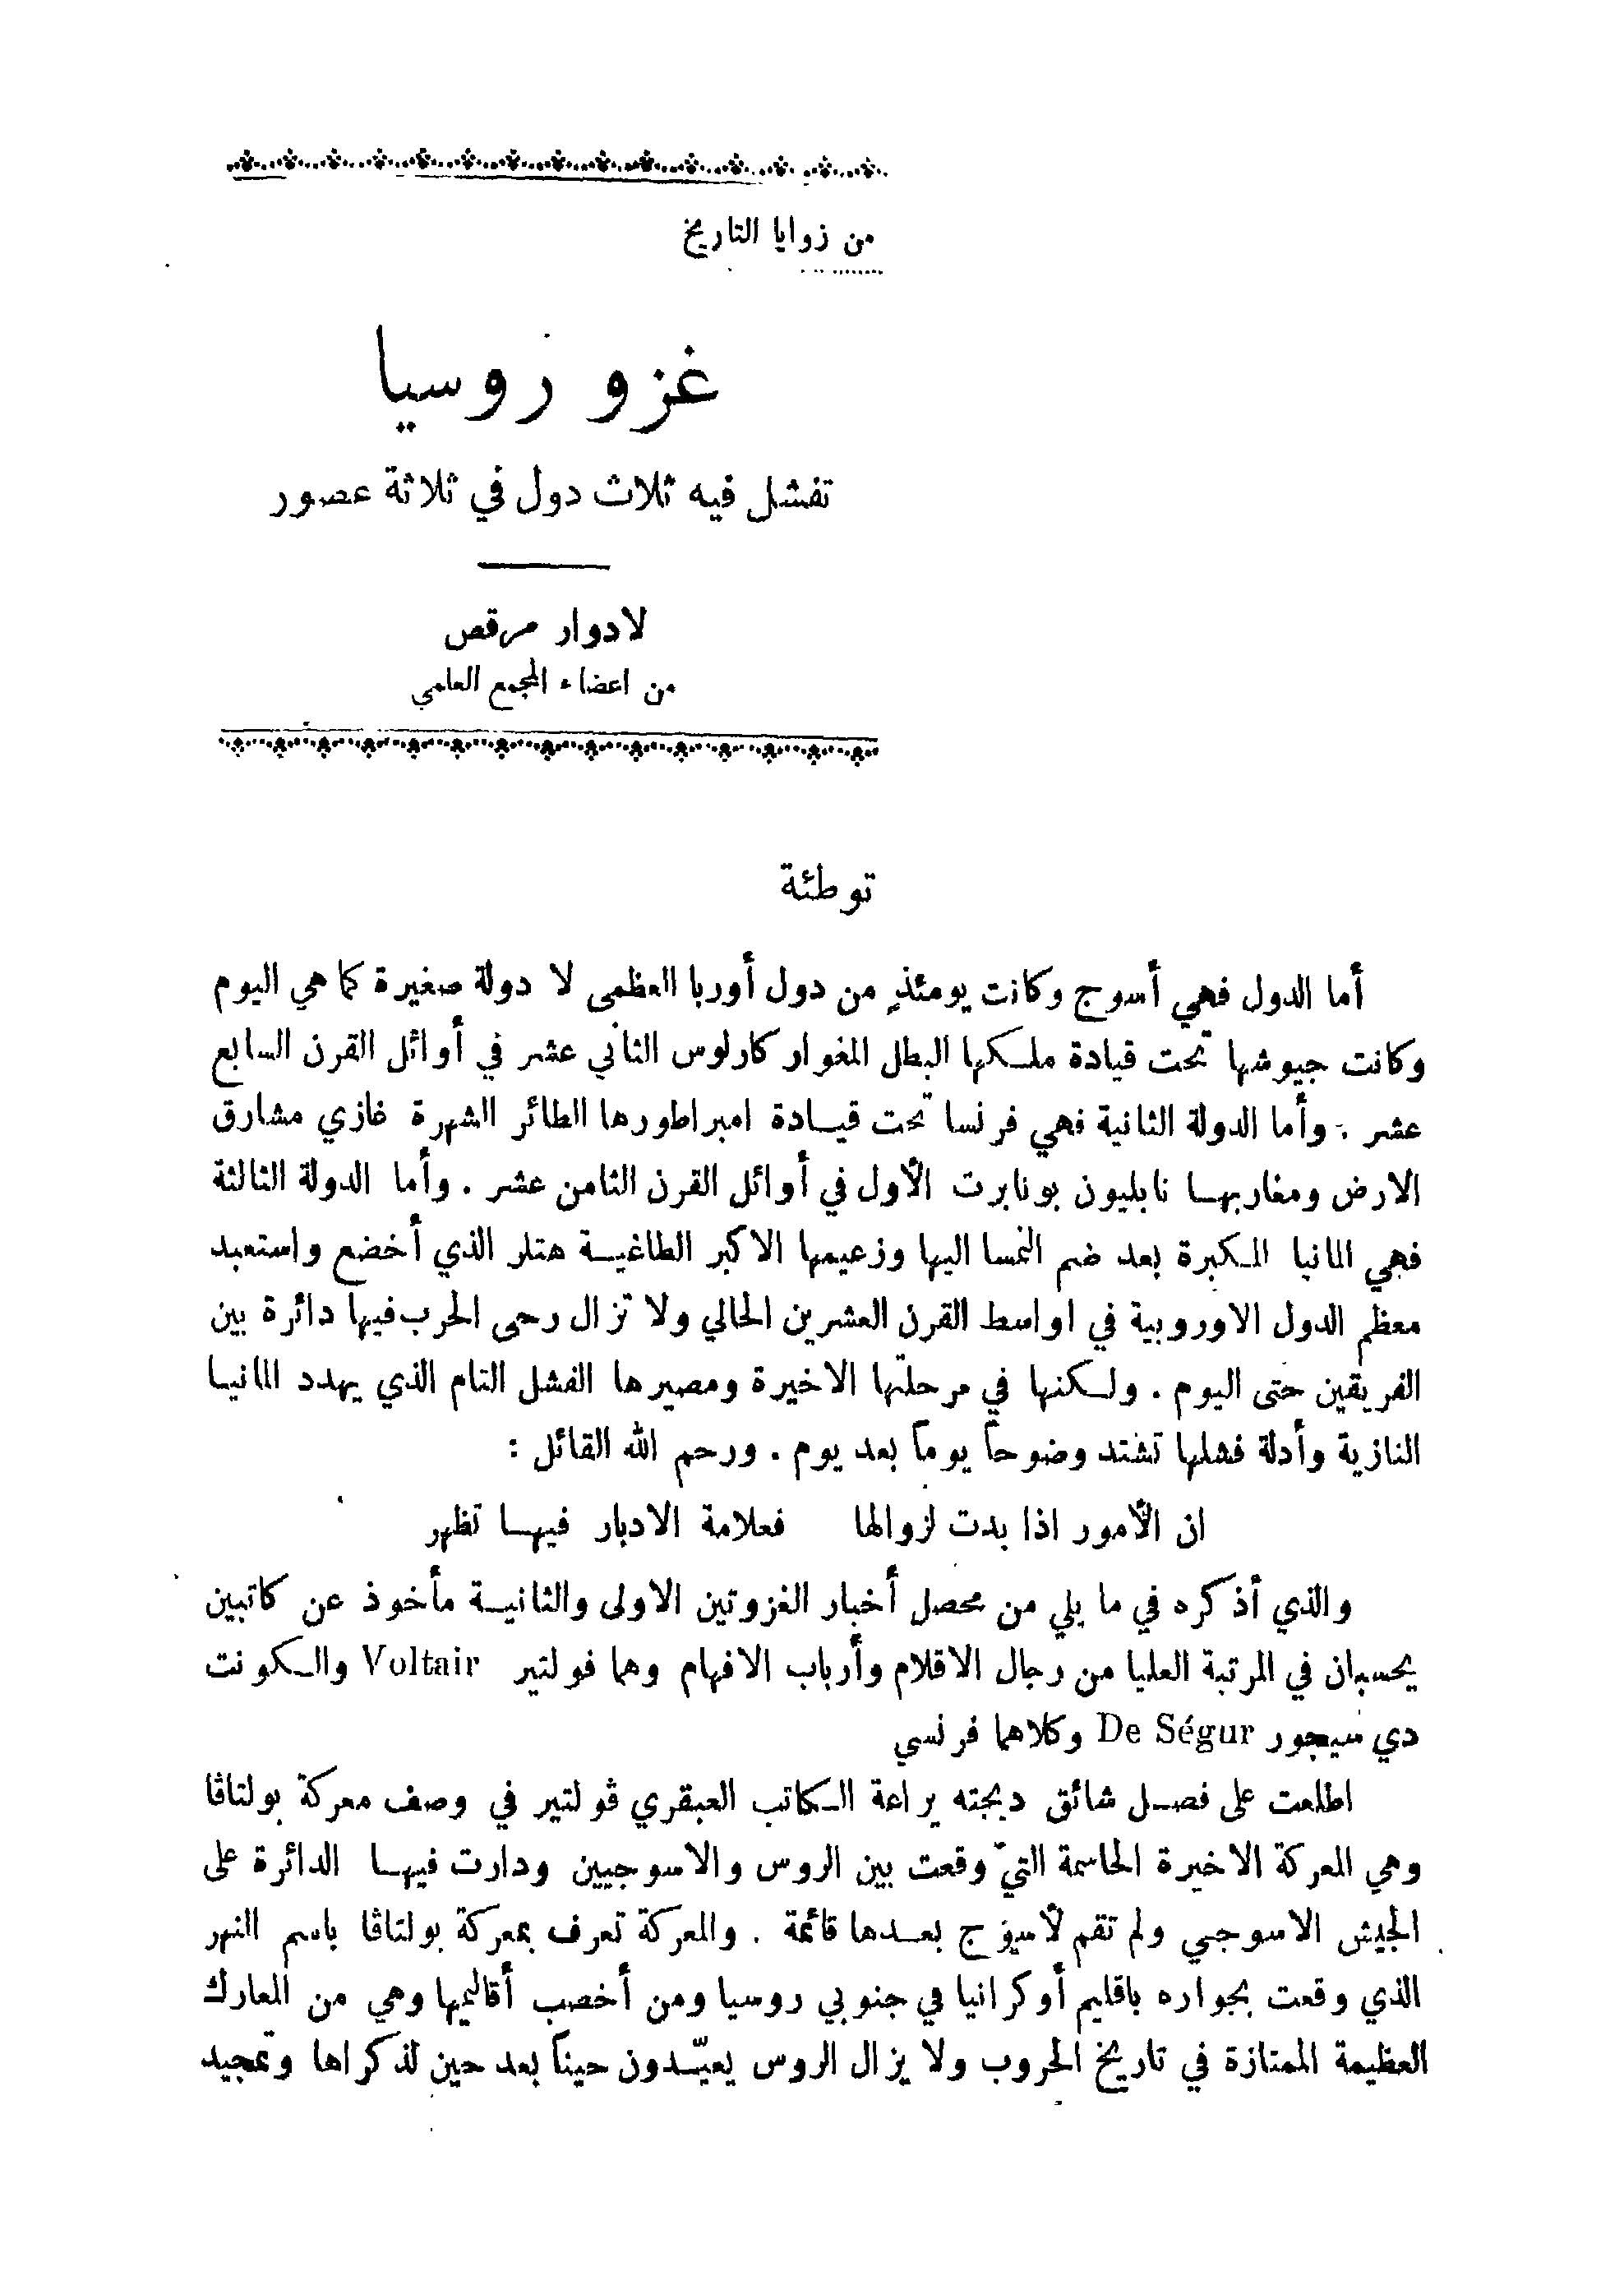 من زوايا التاريخ
غزو روسيا
تفشل فيه ثلاث دول في ثلاثة عصور
لادوار مرقص
من اعضاء المجمع العلمي
توطئة
أما الدول فهي أسوج وكانت يومئذٍ من دول أوربا العظمى لا دولة صغيرة كما هي اليوم
وكانت جيوشها تحت قيادة ملكها البطل المغوار كارلوس الثاني عشر في أوائل القرن السابع
عشر . وأما الدولة الثانية فهي فرنسا تحت قيادة امبراطورها الطائر الشهرة غازي مشارق
الارض ومغاربها نابليون بونابرت الأول في أوائل القرن الثامن عشر . وأما الدولة الثالثة
فهي المانيا المكبرة بعد ضم النمسا اليها وزعيمها الاكبر الطاغية هتلر الذي أخضع واستعبد
معظم الدول الاوروبية في اواسط القرن العشرين الحالي ولا تزال رحى الحرب فيها دائرة بين
الفريقين حتى اليوم . ولكنها في مرحلتها الاخيرة ومصيرها الفشل التام الذي يهدد المانيا
النازية وأدلة فشلها تشتد وضوحاً يوماً بعد يوم . ورحم الله القائل :
ان الأمور اذا بدت لزوالها فعلامة الادبار فيها تظهر
والذي أذكره في ما يلي من محصل أخبار الغزوتين الاولى والثانية مأخوذ عن كاتبين
يحسبان في المرتبة العليا من رجال الاقلام وأرباب الافهام وهما فولتير Voltair والكونت
دي سيجور De Ségur وكلاهما فرنسي
اطلعت على فصل شائق دبجته يراعة الكاتب العبقري ڤولتير في وصف معركة بولتاڤا
وهي المعركة الاخيرة الحاسمة التي وقعت بين الروس والاسوجيين ودارت فيها الدائرة على
الجيش الاسوجي ولم تقم لأسوج بعدها قائمة . والمعركة تعرف بمعركة بولتاڤا باسم النهر
الذي وقعت بجواره باقليم أوكرانيا في جنوبي روسيا ومن أخصب أقاليمها وهي من المعارك
العظيمة الممتازة في تاريخ الحروب ولا يزال الروس يعيّدون حيناً بعد حين لذكراها وتمجيد